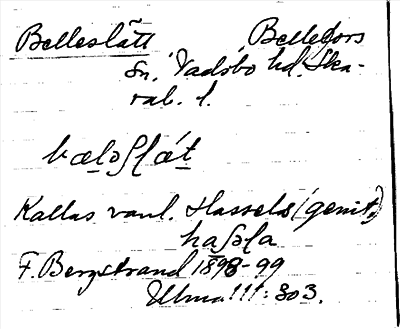 Belleslätt, Bellefors
Sn, Vadsbo hd, Ska-
rab. l.
bæləʃlǽt
Kallas vanl. Hassels (genit.)
hasla
F. Bergstrand 1898-99
Ulma 111:303.